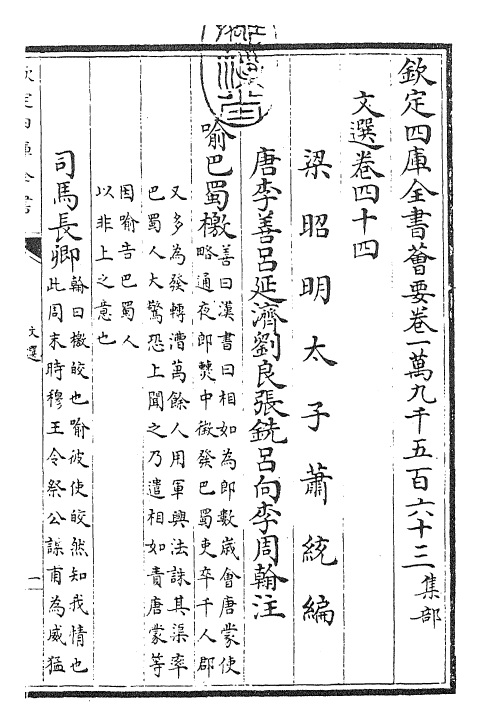 欽定四庫全書薈要卷一萬九千五百六十三 集部
文選卷四十四
梁昭明太子蕭統編
唐李善呂延濟劉良張銑呂向李周翰注
喻巴蜀檄 善曰漢書曰相如為郎數歲會唐蒙使
略通夜郎僰中徵發巴蜀吏卒千人郡
又多為發轉漕萬餘人用軍興法誅其渠率
巴蜀人大驚恐上聞之乃遣相如責唐蒙等
因喻告巴蜀人
以非上之意也
司馬長卿 翰曰檄皎也喻彼使皎然知我情也
此周末時穆王令祭公謀甫為威猛
文選
一